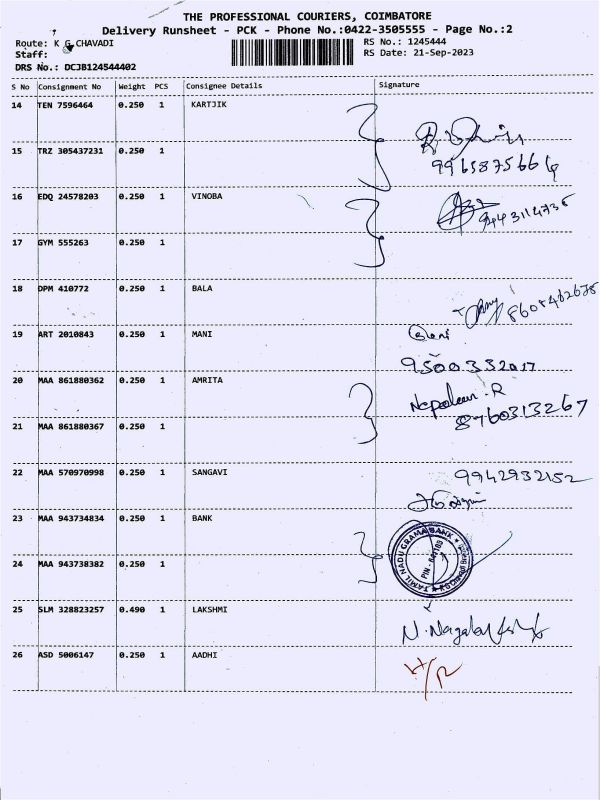 THE PROFESSIONAL COURIERS, COIMBATORE
Delivery Runsheet - PCK - Phone No.:0422-3505555 - Page No.:2
Route: K G CHAVADI
RS No.: 1245444
Staff:
RS Date: 21-Sep-2023
DRS No.: DCJB124544402
S No Consignment No Weight PCS Consignee Details Signature
14 TEN 7596464 0.250 1 KARTJIK
9965875664
15 TRZ 305437231 0.250 1
16 EDQ 24578203 0.250 1 VINOBA
9443114735
17 GYM 555263 0.250 1
18 DPM 410772 0.250 1 BALA
8608462678
19 ART 2010843 0.250 1 MANI
9500332017
20 MAA 861880362 0.250 1 AMRITA
Nepolean. R
8760313267
21 MAA 861880367 0.250 1
22 MAA 570970998 0.250 1 SANGAVI 9942932152
23 MAA 943734834 0.250 1 BANK
TAMIL NADU GRAMA BANK
24 MAA 943738382 0.250 1
25 SLM 328823257 0.490 1 LAKSHMI
26 ASD 5006147 0.250 1 AADHI